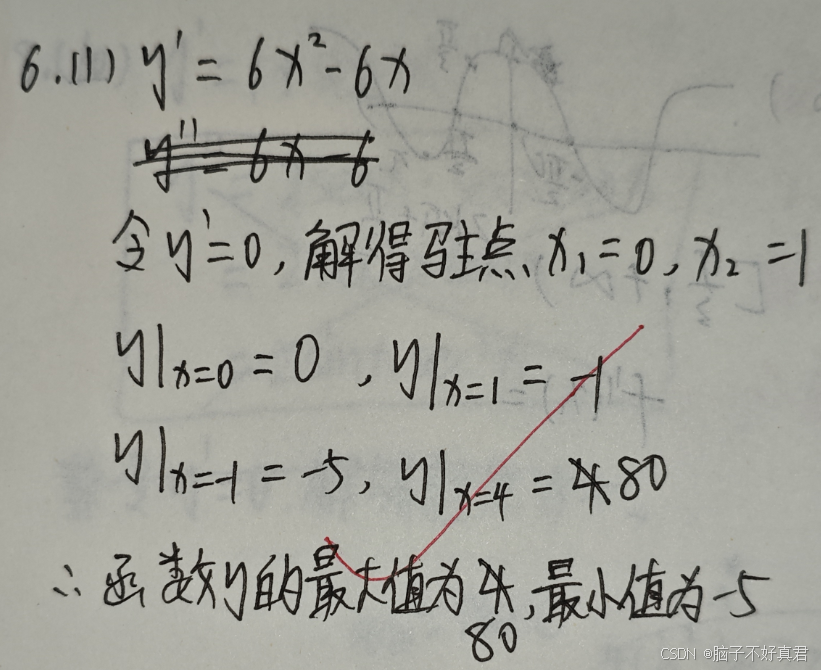 6.(1) y' = 6x² - 6x
y'' = 6x - 6
令y'=0, 解得驻点 x₁=0, x₂=1
y|x=0 = 0 , y|x=1 = -1
y|x=-1 = -5, y|x=4 = 80
∴函数y的最大值为 , 最小值为-5
80
CSDN @脑子不好真君